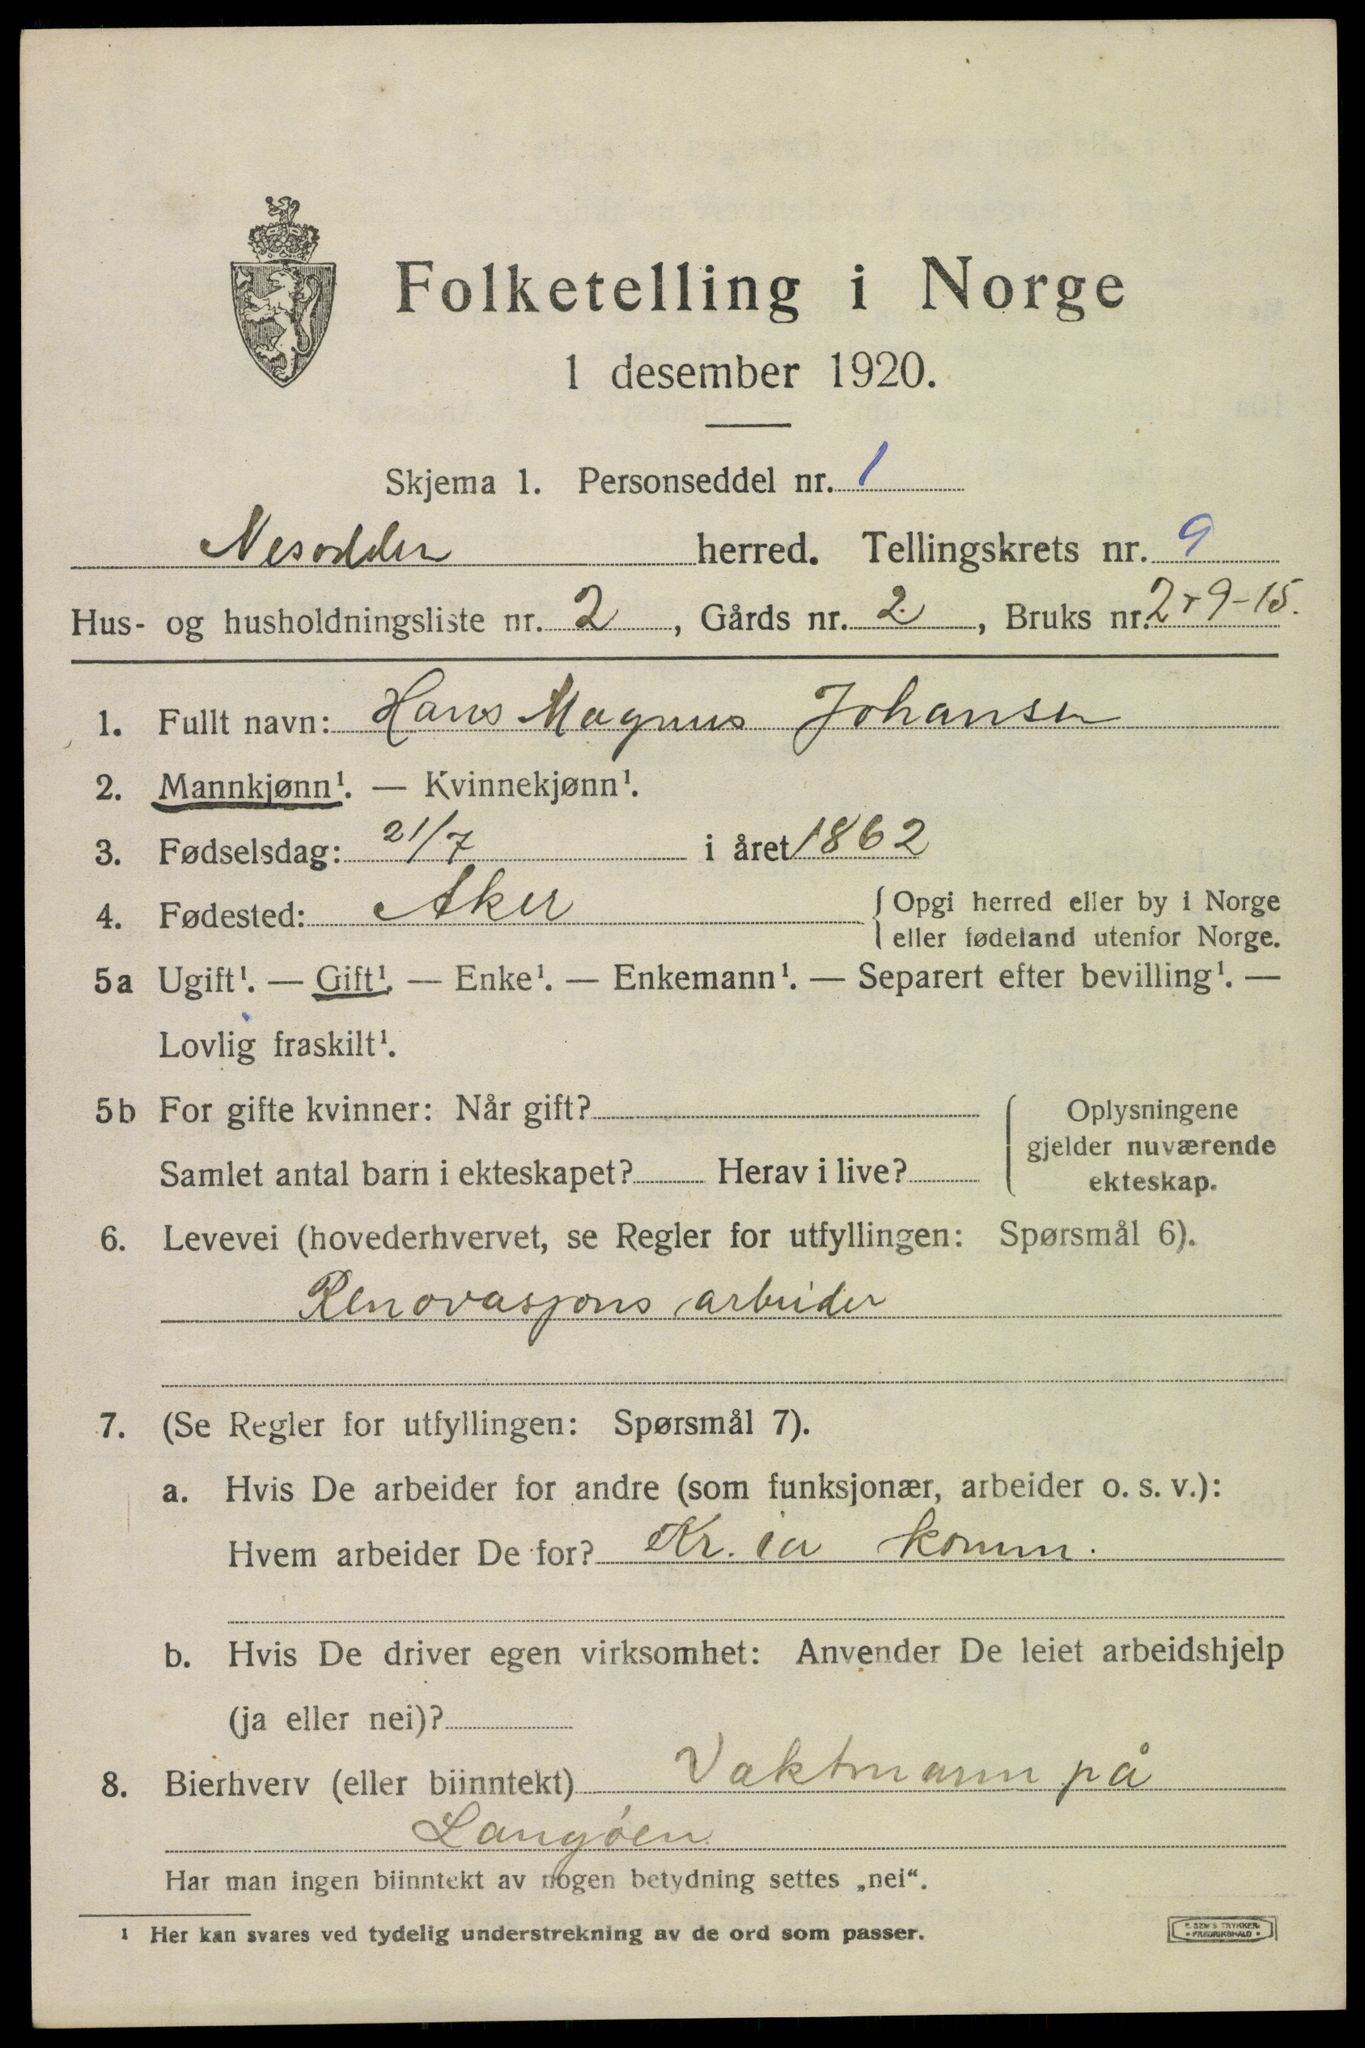 Folketelling i Norge
1 desember 1920.
Skjema 1. Personseddel nr. 1
Nesodden herred. Tellingskrets nr. 9
Hus- og husholdningsliste nr. 2, Gårds nr. 2, Bruks nr. 2+9-15.
1. Fullt navn: Hans Magnus Johansen
2. Mannkjønn¹. — Kvinnekjønn¹.
3. Fødselsdag: 21/7 i året 1862
4. Fødested: Aker { Opgi herred eller by i Norge
eller fødeland utenfor Norge.
5a Ugift¹. — Gift¹. — Enke¹. — Enkemann¹. — Separert efter bevilling¹. —
Lovlig fraskilt¹.
5b For gifte kvinner: Når gift? { Oplysningene
gjelder nuværende
Samlet antal barn i ekteskapet? Herav i live?
ekteskap.
6. Levevei (hovederhvervet, se Regler for utfyllingen: Spørsmål 6).
Renovasjons arbeider
7. (Se Regler for utfyllingen: Spørsmål 7).
a. Hvis De arbeider for andre (som funksjonær, arbeider o. s. v.):
Hvem arbeider De for? Kr. ia komm.
b. Hvis De driver egen virksomhet: Anvender De leiet arbeidshjelp
(ja eller nei)?
8. Bierhverv (eller biinntekt) Vaktmann på
Langøen.
Har man ingen biinntekt av nogen betydning settes „nei“.
¹ Her kan svares ved tydelig understrekning av de ord som passer.
TRYKKERI
FREDRIKSHALD